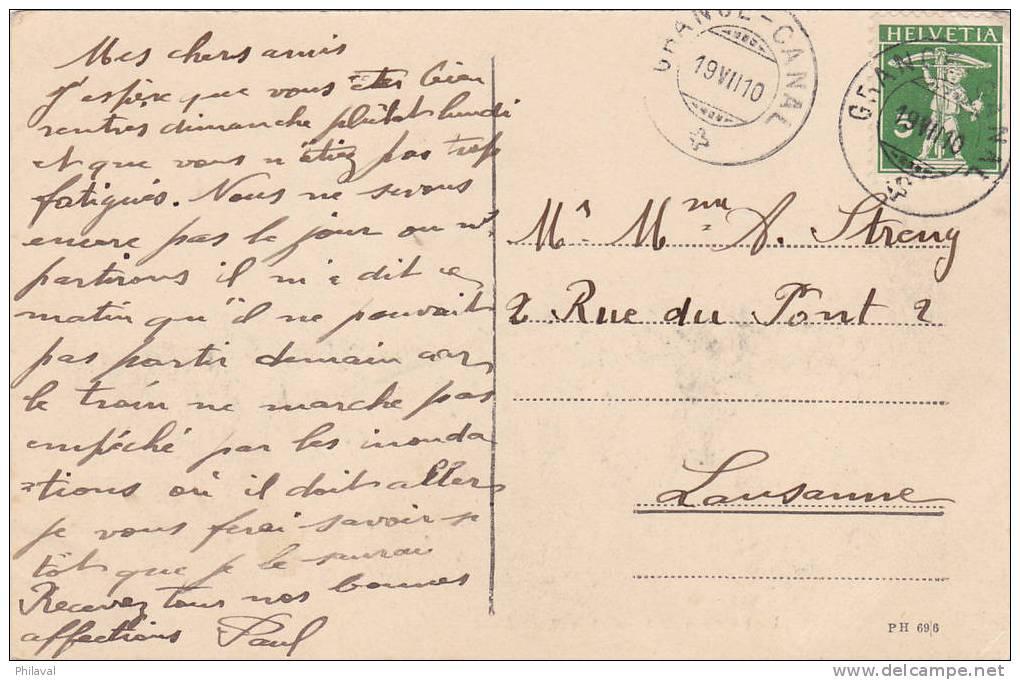 Mes chers amis
J'espère que vous êtes bien
rentrés dimanche plutôt lundi
et que vous n'étiez pas trop
fatigués. Nous ne savons
encore pas le jour ou n.
partirons il m'a dit ce
matin qu'il ne pouvait
pas partir demain car
le train ne marche pas
empéché par les inonda
-tions où il doit aller
je vous ferai savoir si
tôt que je le saurai
Recevez tous nos bonnes
affections Paul
GRANGE-CANAL
19 VII 10
HELVETIA
5
GRANGE-CANAL
19 VII 10
Mr Mme A. Streng
2 Rue du Pont 2
Lausanne
PH 696
Philaval
delcampe.net